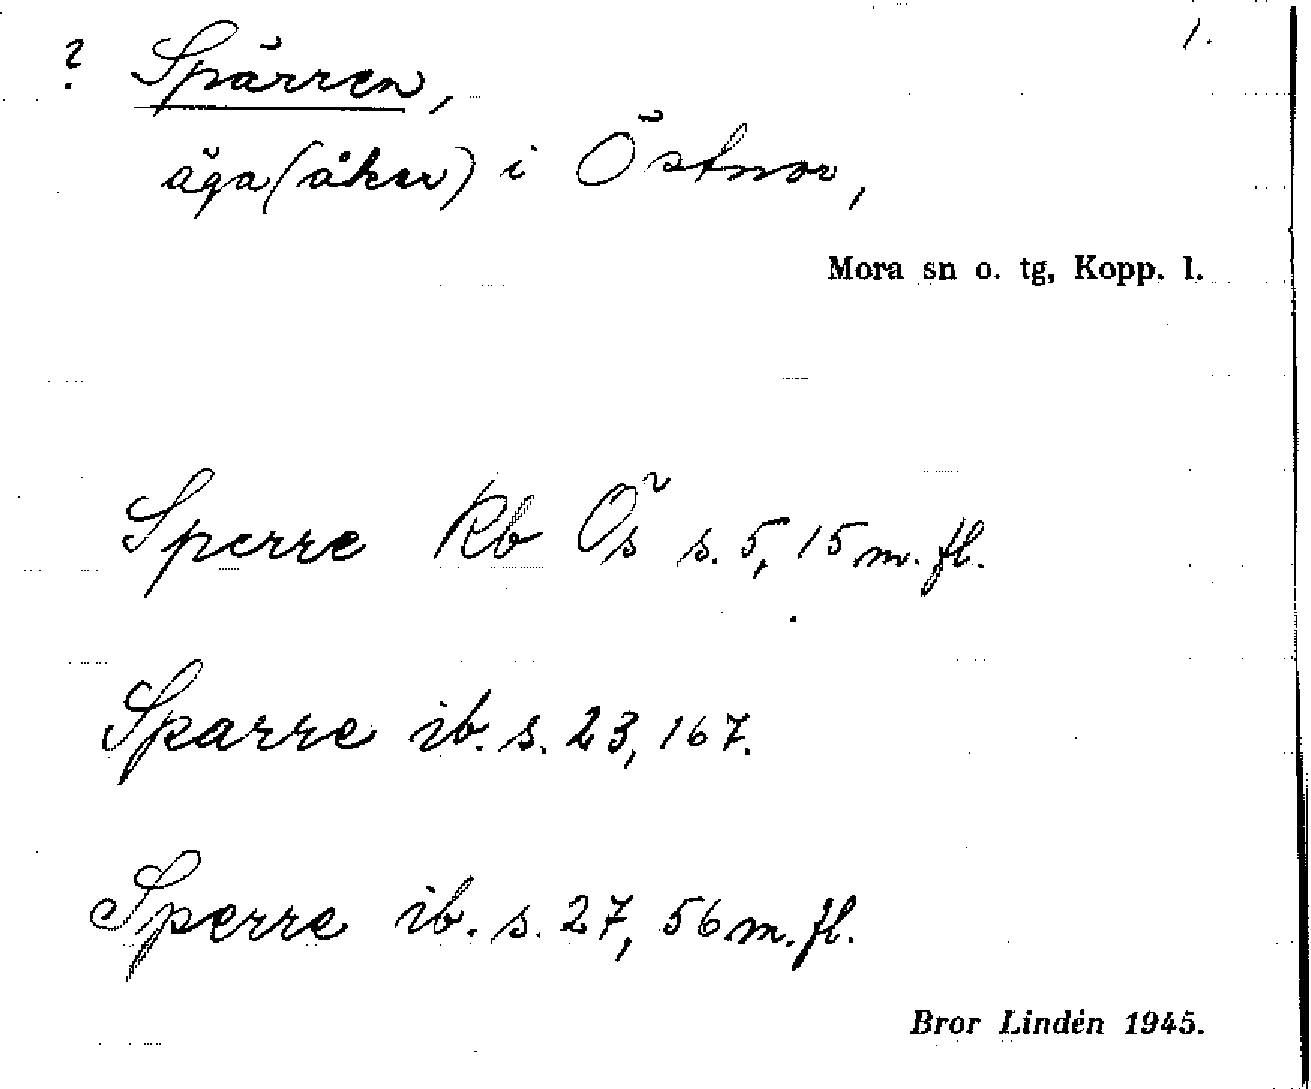 1.
? Spärren,
äga (åker) i Östnor,
Mora sn o. tg, Kopp. l.
Sperre Rb Ös s. 5, 15 m. fl.
Sparre ib. s. 23, 167.
Sperre ib. s. 27, 56 m. fl.
Bror Lindén 1945.